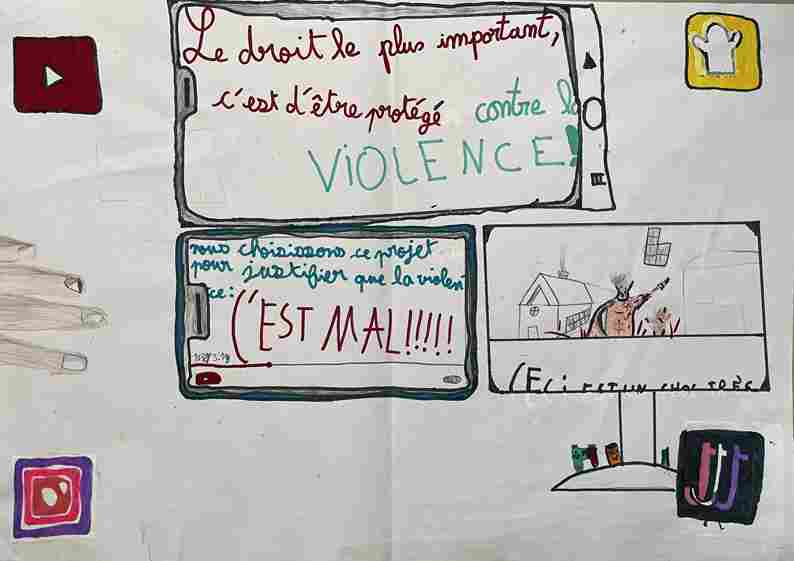 Le droit le plus important,
c'est d'être protégé contre la
VIOLENCE!
nous choisissons ce projet
pour justifier que la violen
ce:
C'EST MAL!!!!!
CECI EST UN CHOC TRÈS